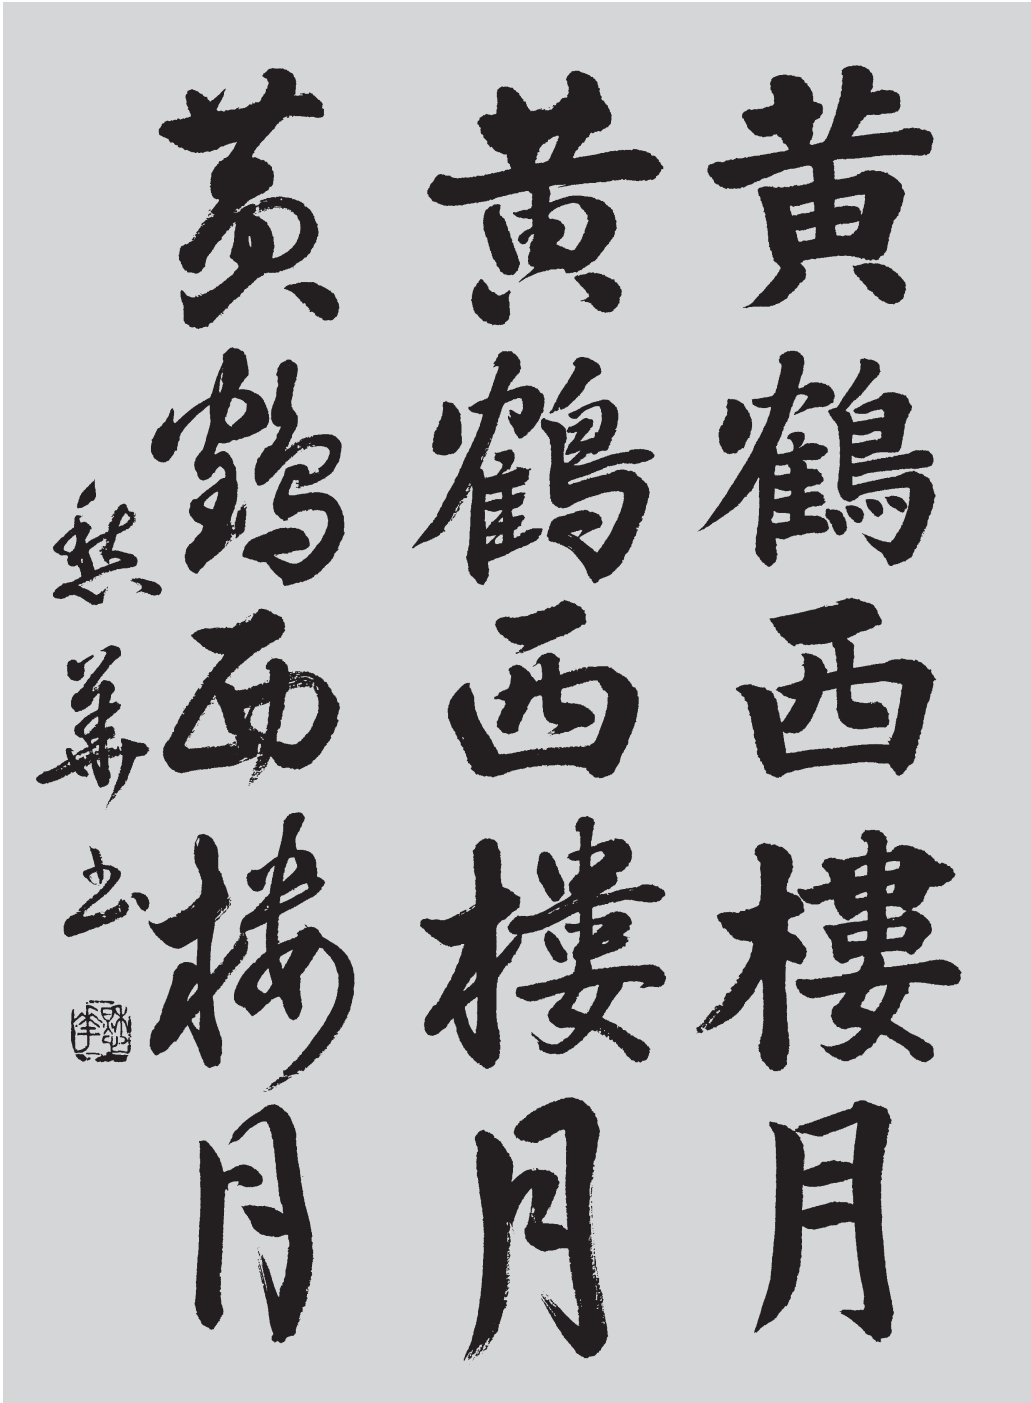 黄鶴西樓月
黄鶴西樓月
黄鶴西樓月
愁華書